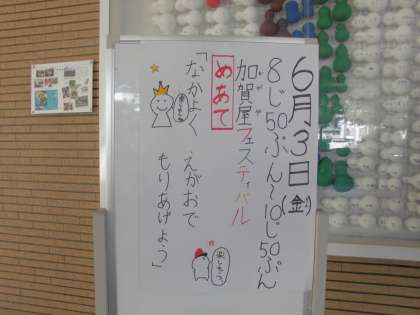 6月3日(金)
8じ50ぷん〜10じ50ぷん
加賀屋フェスティバル
かがや
めあて
「なかよく えがおで
もりあげよう」
楽しもう